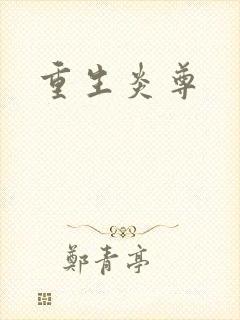 重生炎尊
鄭青亭